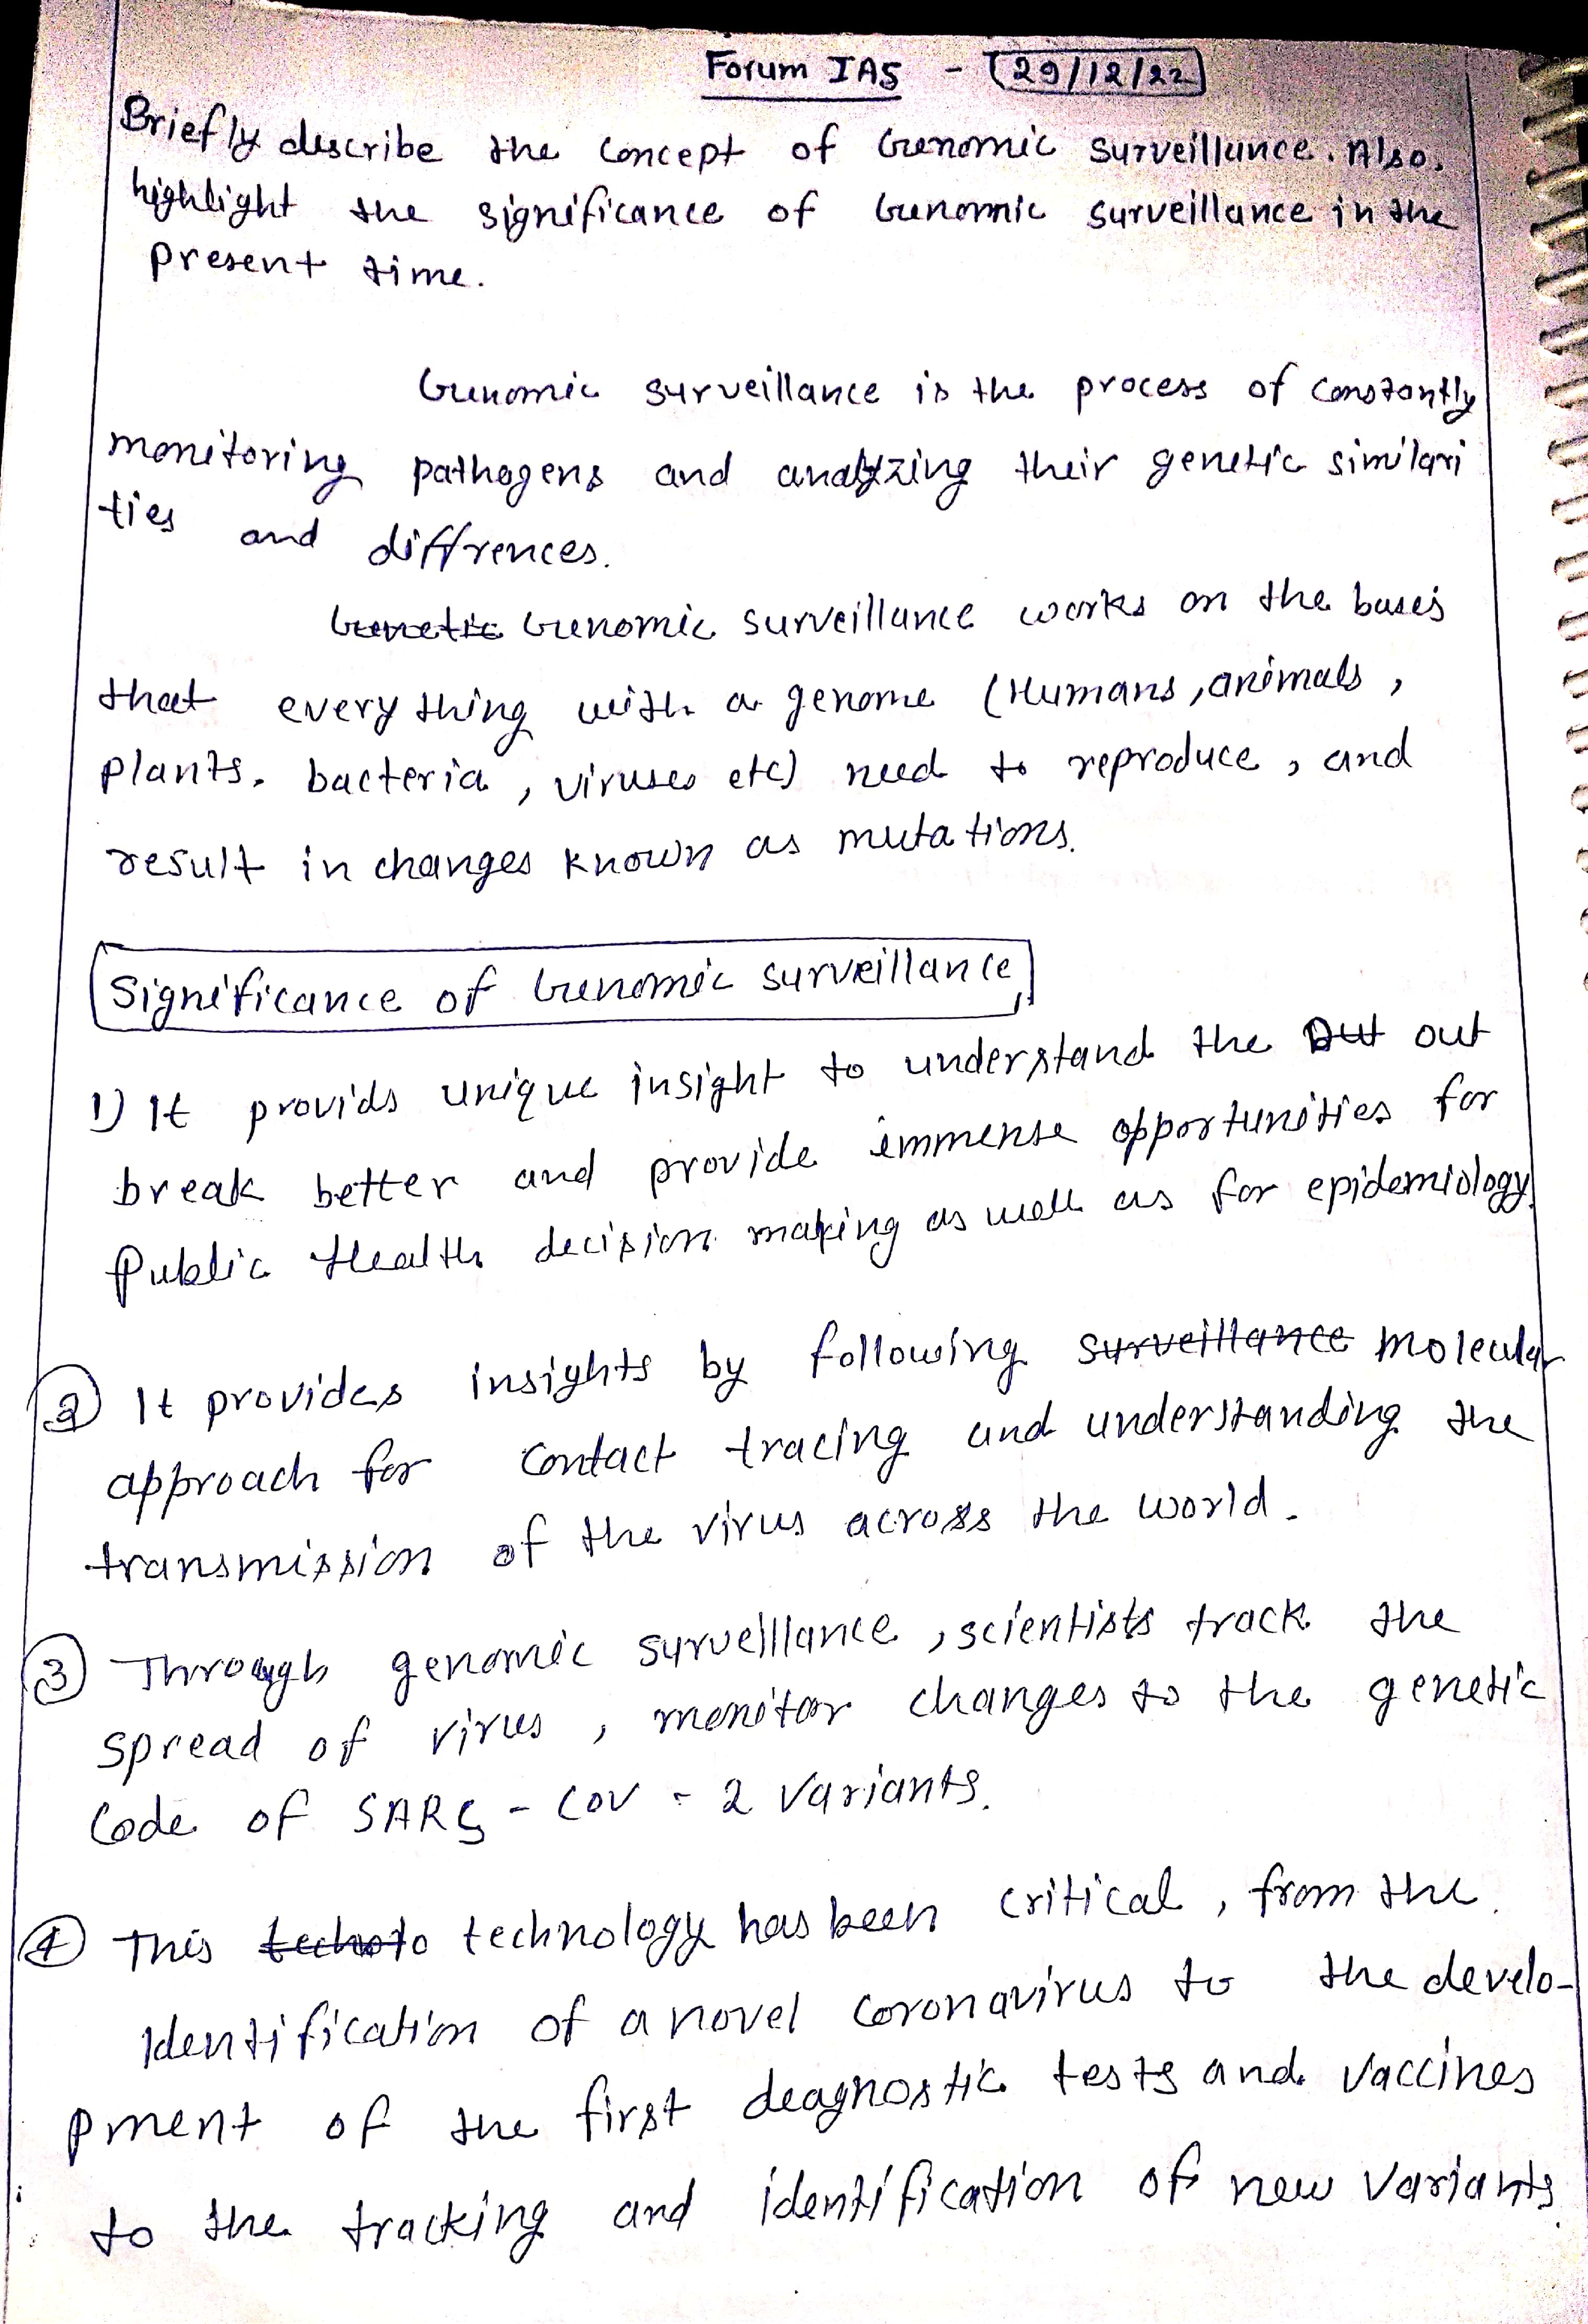 Forum IAS - 29/12/22
Briefly describe the concept of Genomic surveillance. Also,
highlight the significance of Genomic surveillance in the
present time.
Genomic surveillance is the process of constantly
monitoring pathogens and analyzing their genetic similari
ties and diffrences.
Genetic Genomic surveillance works on the bases
that every thing with a genome (Humans, animals,
plants, bacteria, viruses etc) need to reproduce, and
result in changes known as mutations.
Significance of Genomic surveillance
1) It provids unique insight to understand the out out
break better and provide immense opportunities for
Public Health decision making as well as for epidemiology.
2 It provides insights by following surveillance molecular
approach for contact tracing and understanding the
transmission of the virus across the world.
3 Through genomic surveillance, scientists track the
spread of virus, monitor changes to the genetic
Code of SARS - Cov - 2 variants.
4 This techoto technology has been critical, from the
Identification of a novel coronavirus to the develo-
pment of the first deagnostic tests and vaccines
to the tracking and identification of new variants.